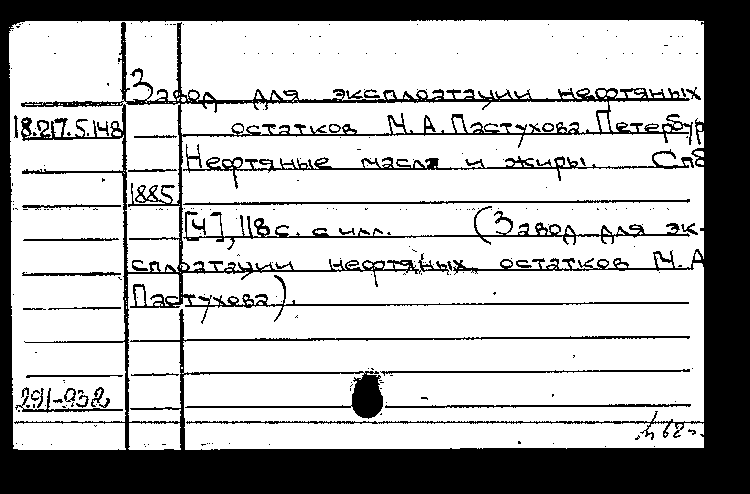 Завод для эксплоатации нефтяных
18.217.5.148
остатков М.А. Пастухова. Петербур
Нефтяные масла и жиры. Спб
1885.
[4], 118 с. с илл. (Завод для эк-
сплоатации нефтяных остатков М.А
Пастухова).
291-932